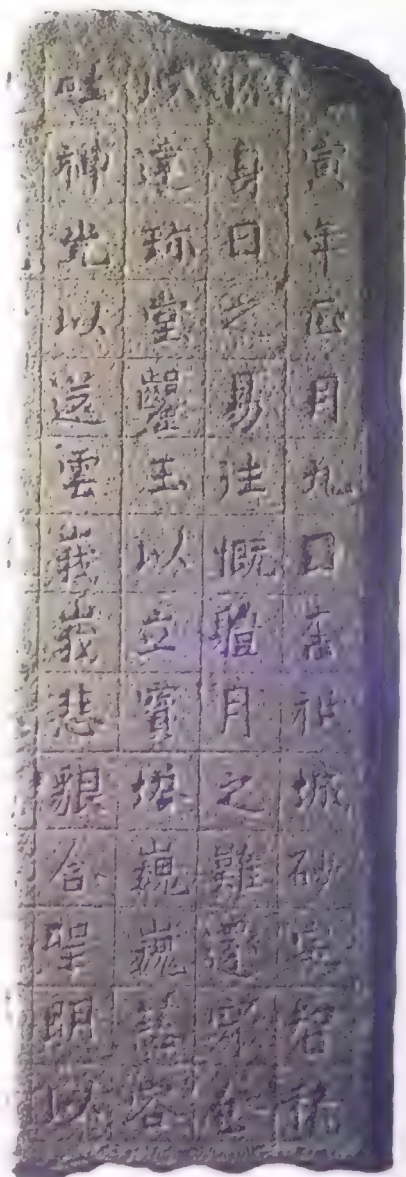 寅年正月九日奈祇城砂宅智積
慷身日之易往慨體月之難還穿金
以建珍堂鑿玉以立寶塔巍巍慈容
吐神光以送雲峩峩悲貌含聖明以